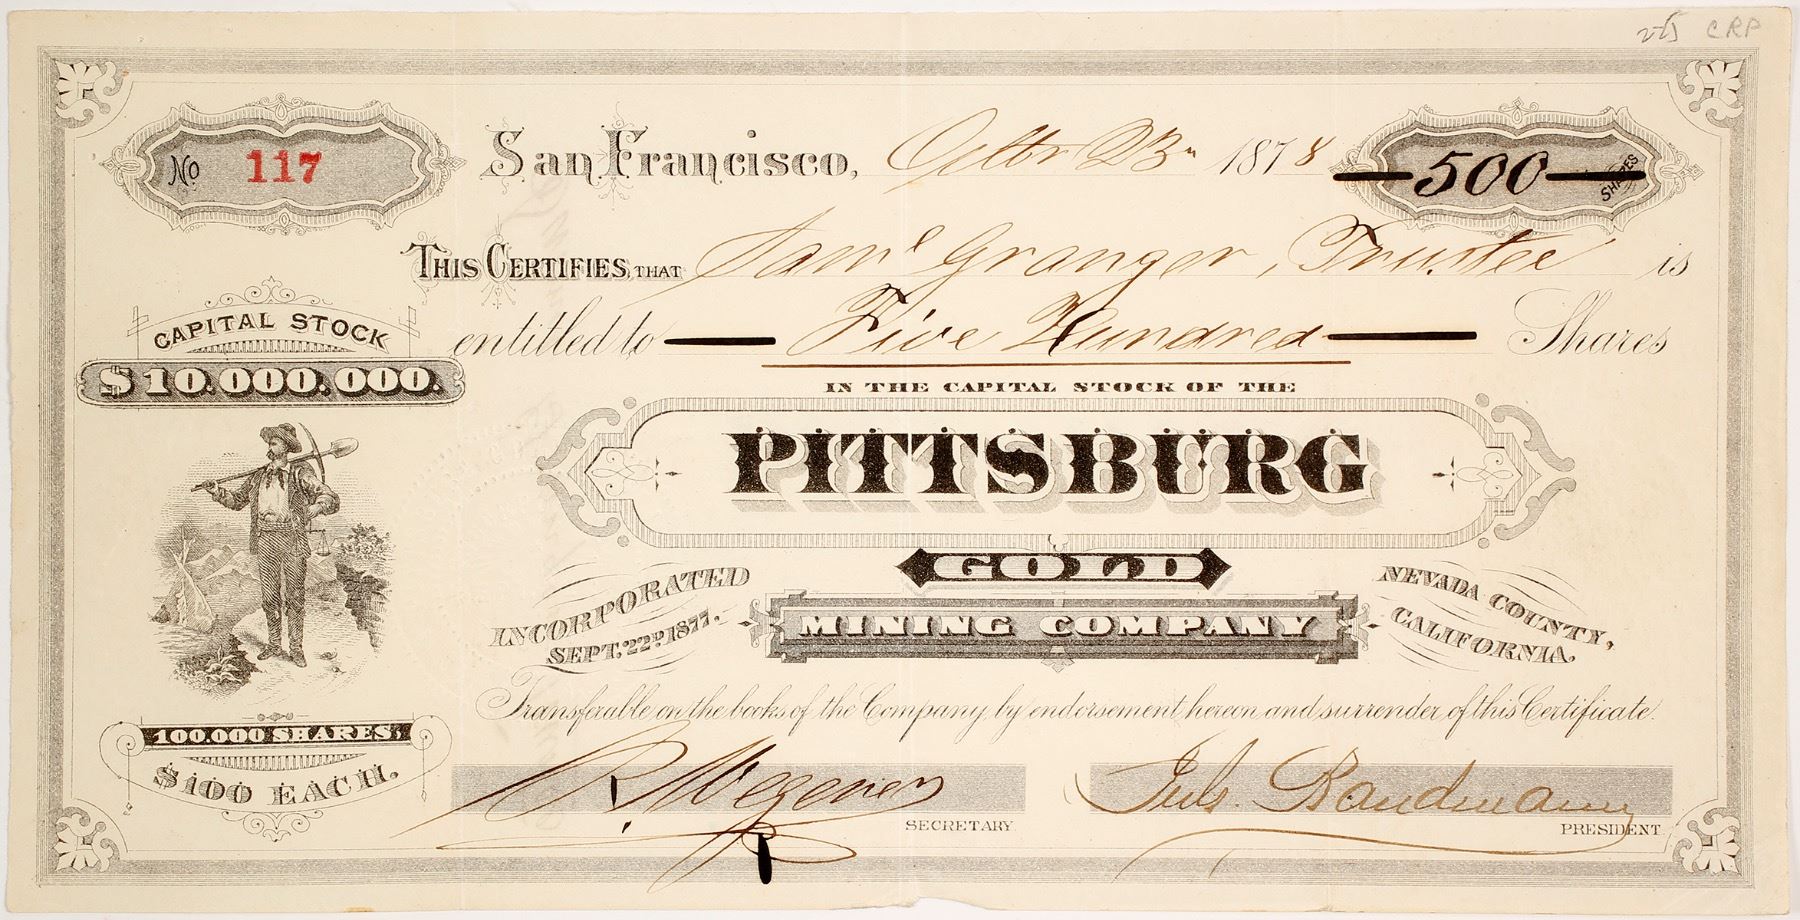 225 CRP
No 117
San Francisco, Octbr 23rd 1878
500 SHARES
THIS CERTIFIES, THAT Saml Granger, Trustee is
entitled to Five Hundred Shares
IN THE CAPITAL STOCK OF THE
PITTSBURG
GOLD
MINING COMPANY
INCORPORATED
SEPT. 22D. 1877.
NEVADA COUNTY,
CALIFORNIA.
CAPITAL STOCK
$10.000.000.
100.000 SHARES,
$100 EACH.
Transferable on the books of the Company, by endorsement hereon and surrender of this Certificate.
R. Wegener
SECRETARY.
Juls. Bandmann
PRESIDENT.